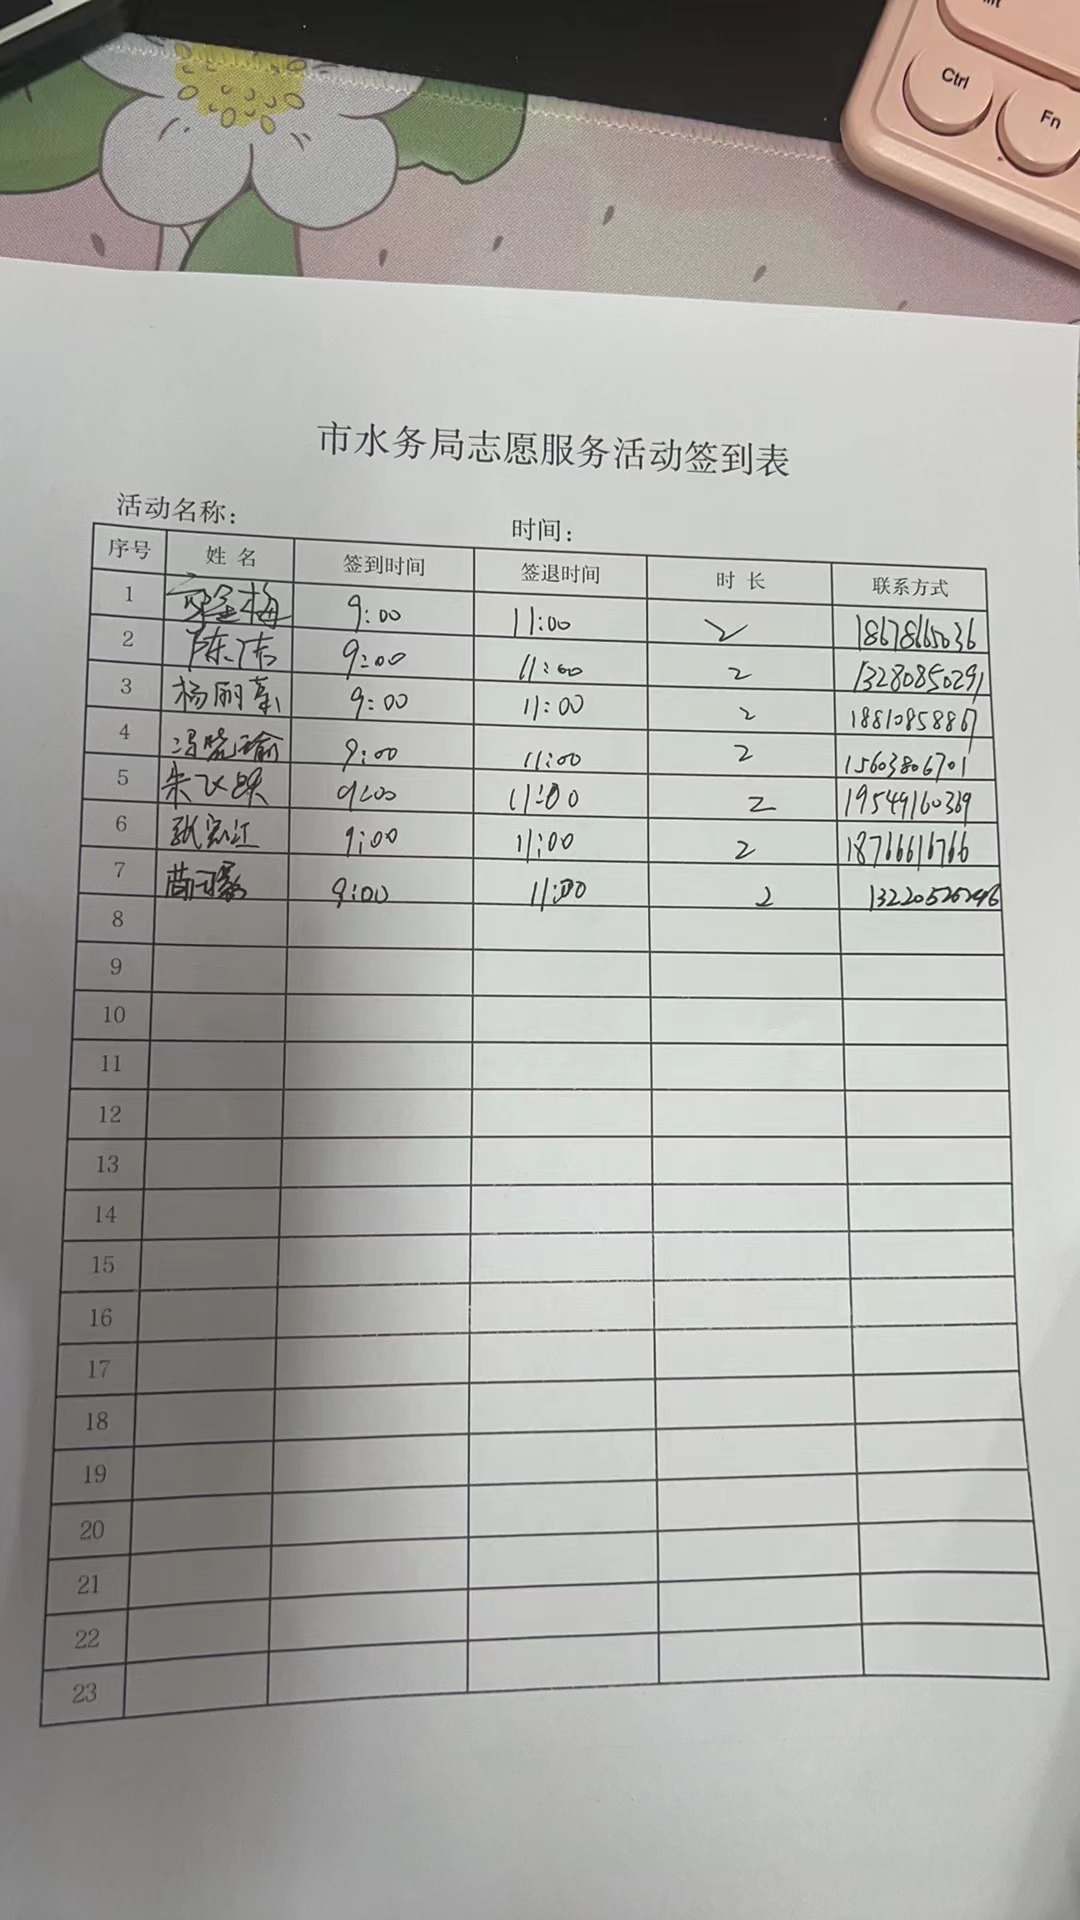 Ctrl
Fn
市水务局志愿服务活动签到表
活动名称: 时间:
序号 姓名 签到时间 签退时间 时长 联系方式
1 9:00 11:00 2 18678665036
2 陈洁 9:00 11:00 2 13280850291
3 杨丽菊 9:00 11:00 2 18810858867
4 冯晓瑜 9:00 11:00 2 15603806701
5 朱飞跃 9:00 11:00 2 19549160369
6 9:00 11:00 2 18766616766
7 9:00 11:00 2 13220526296
8
9
10
11
12
13
14
15
16
17
18
19
20
21
22
23